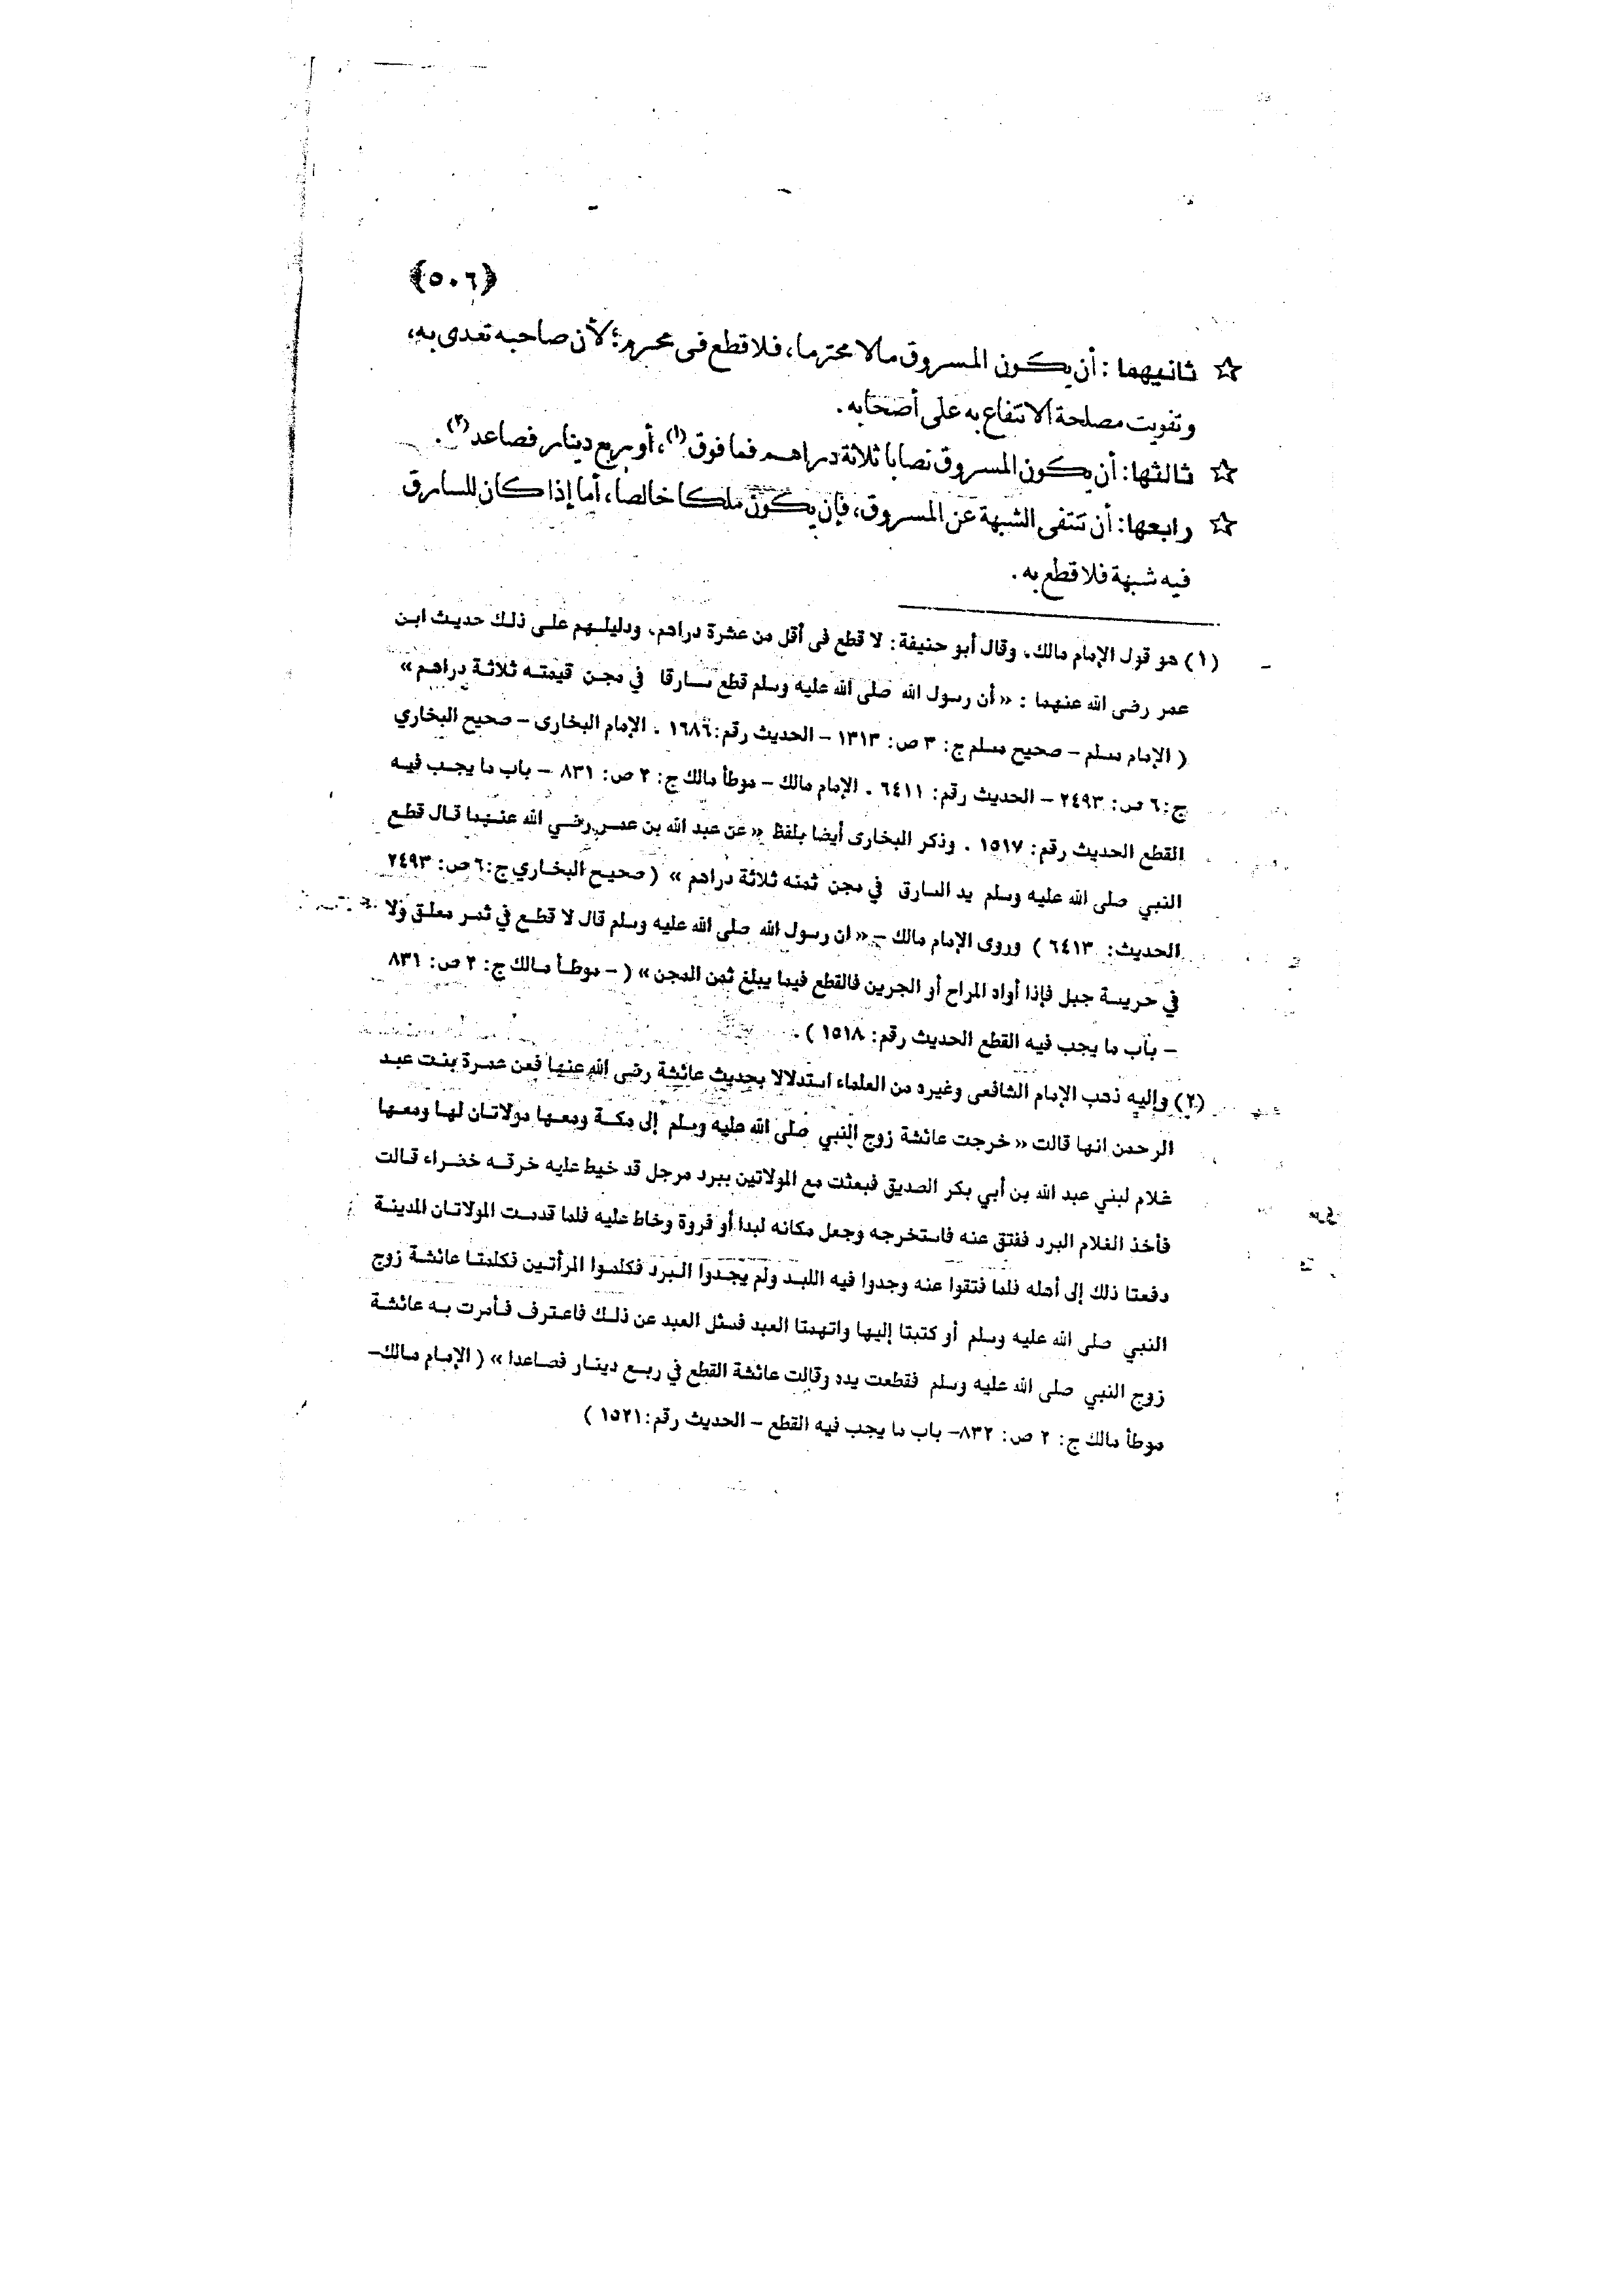 ﴿٥٠٦﴾
☆ ثانيهما: أن يكون المسروق مالا محترما، فلا قطع فى محرم؛ لأن صاحبه تعدى به،
وتفويت مصلحة الانتفاع به على أصحابه.
☆ ثالثها: أن يكون المسروق نصابا ثلاثة دراهم فما فوق(١)، أو ربع دينار فصاعد(٢).
☆ رابعها: أن تنتفى الشبهة عن المسروق، فإن يكون ملكا خالصا، أما إذا كان للسارق
فيه شبهة فلا قطع به.
(١) هو قول الإمام مالك. وقال أبو حنيفة: لا قطع فى أقل من عشرة دراهم. ودليلهم على ذلك حديث ابن
عمر رضى الله عنهما : « أن رسول الله صلى الله عليه وسلم قطع سارقا في مجن قيمته ثلاثة دراهم »
( الإمام مسلم – صحيح مسلم ج: ٣ ص: ١٣١٣ – الحديث رقم: ١٦٨٦ . الإمام البخارى – صحيح البخاري
ج:٦ ص: ٢٤٩٣ – الحديث رقم: ٦٤١١ . الإمام مالك – موطأ مالك ج: ٢ ص: ٨٣١ – باب ما يجب فيه
القطع الحديث رقم: ١٥١٧ . وذكر البخارى أيضا بلفظ « عن عبد الله بن عمر رضي الله عنهما قال قطع
النبي صلى الله عليه وسلم يد السارق في مجن ثمنه ثلاثة دراهم » ( صحيح البخاري ج:٦ ص: ٢٤٩٣
الحديث: ٦٤١٣ ) وروى الإمام مالك – « ان رسول الله صلى الله عليه وسلم قال لا قطع في ثمر معلق ولا
في حريسة جبل فإذا أواه المراح أو الجرين فالقطع فيما يبلغ ثمن المجن » ( – موطأ مالك ج: ٢ ص: ٨٣١
– باب ما يجب فيه القطع الحديث رقم: ١٥١٨ ) .
(٢) وإليه ذهب الإمام الشافعى وغيره من العلماء استدلالا بحديث عائشة رضى الله عنها فعن عمرة بنت عبد
الرحمن انها قالت « خرجت عائشة زوج النبي صلى الله عليه وسلم إلى مكة ومعها مولاتان لها ومعها
غلام لبني عبد الله بن أبي بكر الصديق فبعثت مع المولاتين ببرد مرجل قد خيط عليه خرقه خضراء قالت
فأخذ الغلام البرد ففتق عنه فاستخرجه وجعل مكانه لبدا أو فروة وخاط عليه فلما قدمت المولاتان المدينة
دفعتا ذلك إلى أهله فلما فتقوا عنه وجدوا فيه اللبد ولم يجدوا البرد فكلموا المرأتين فكلمتا عائشة زوج
النبي صلى الله عليه وسلم أو كتبتا إليها واتهمتا العبد فسئل العبد عن ذلك فاعترف فأمرت به عائشة
زوج النبي صلى الله عليه وسلم فقطعت يده وقالت عائشة القطع في ربع دينار فصاعدا » ( الإمام مالك–
موطأ مالك ج: ٢ ص: ٨٣٢– باب ما يجب فيه القطع – الحديث رقم:١٥٢١ )